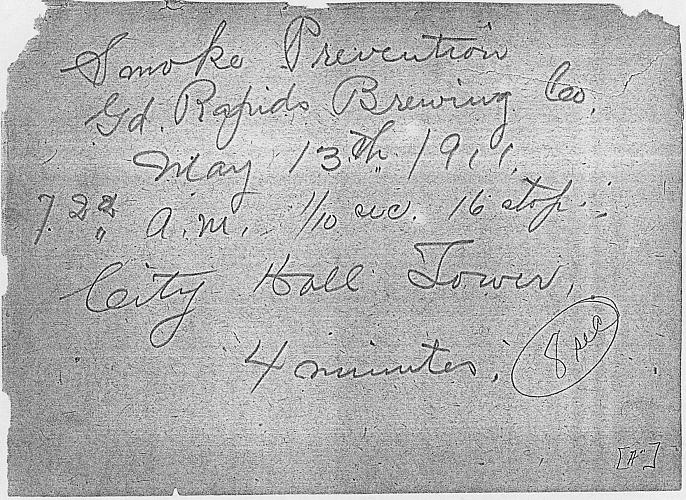 Smoke Prevention
Gd. Rapids Brewing Co.
May 13th 1911.
7.22 a.m. 1/10 sec. 16 stop.
City Hall Tower,
4 minutes.
8 sec
["A"]